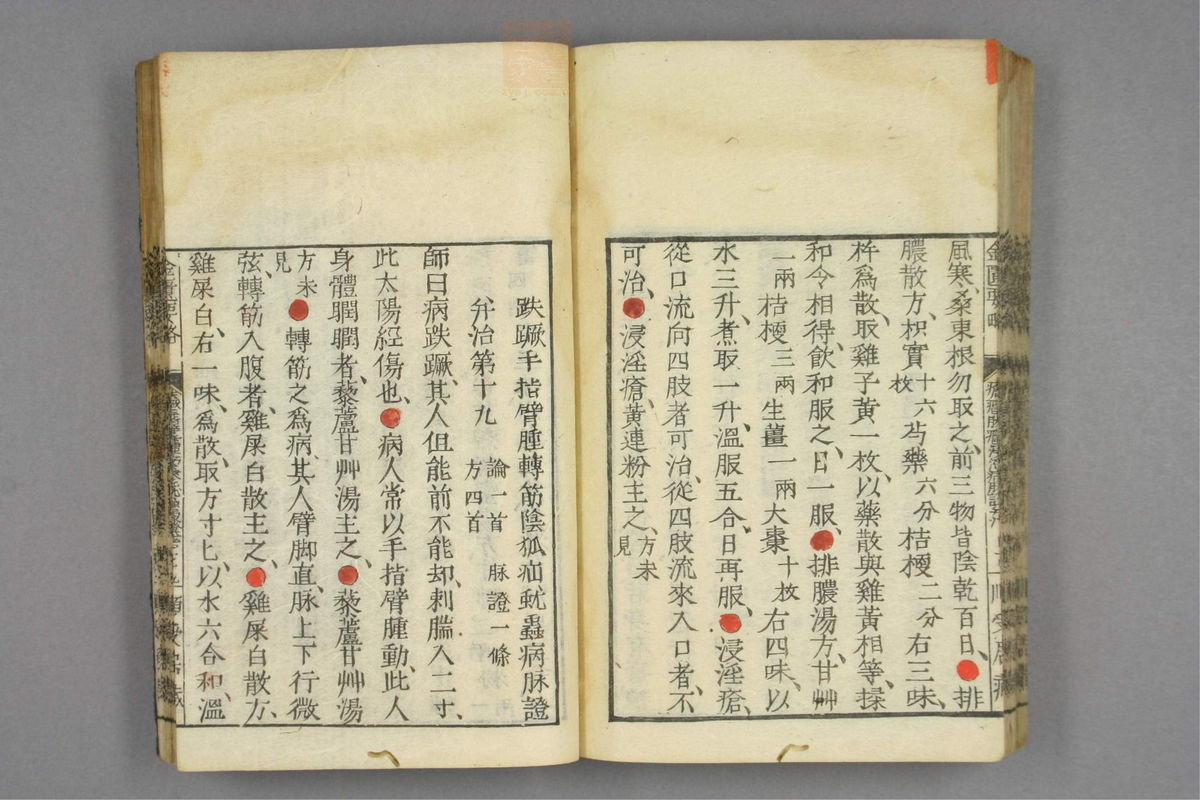 風寒、桑東根勿取之、前三物皆陰乾百日、排
膿散方、枳實十六枚芍藥六分桔梗二分右三味、
杵爲散、取雞子黃一枚、以藥散與雞黃相等、揉
和令相得、飮和服之、日一服、排膿湯方、甘艸
二兩桔梗三兩生薑一兩大棗十枚右四味、以
水三升、煮取一升、溫服五合、日再服、浸淫瘡、
從口流向四肢者可治、從四肢流來入口者、不
可治、浸淫瘡、黃連粉主之、方未見
趺蹶手指臂腫轉筋陰狐疝蚘蟲病脉證
弁治第十九論一首脉證一條方四首
師曰病趺蹶、其人但能前不能却、刺腨入二寸、
此太陽經傷也、病人常以手指臂腫動、此人
身體瞤瞤者、藜蘆甘艸湯主之、藜蘆甘艸湯
方未見轉筋之爲病、其人臂脚直、脉上下行微
弦、轉筋入腹者、雞屎白散主之、雞屎白散方、
雞屎白、右一味、爲散、取方寸匕、以水六合和、溫